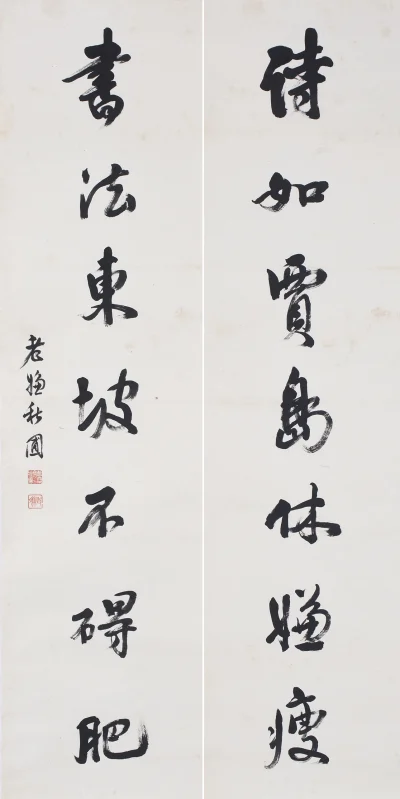 詩如賈島休嫌瘦
書法東坡不碍肥
老嫌秋圃